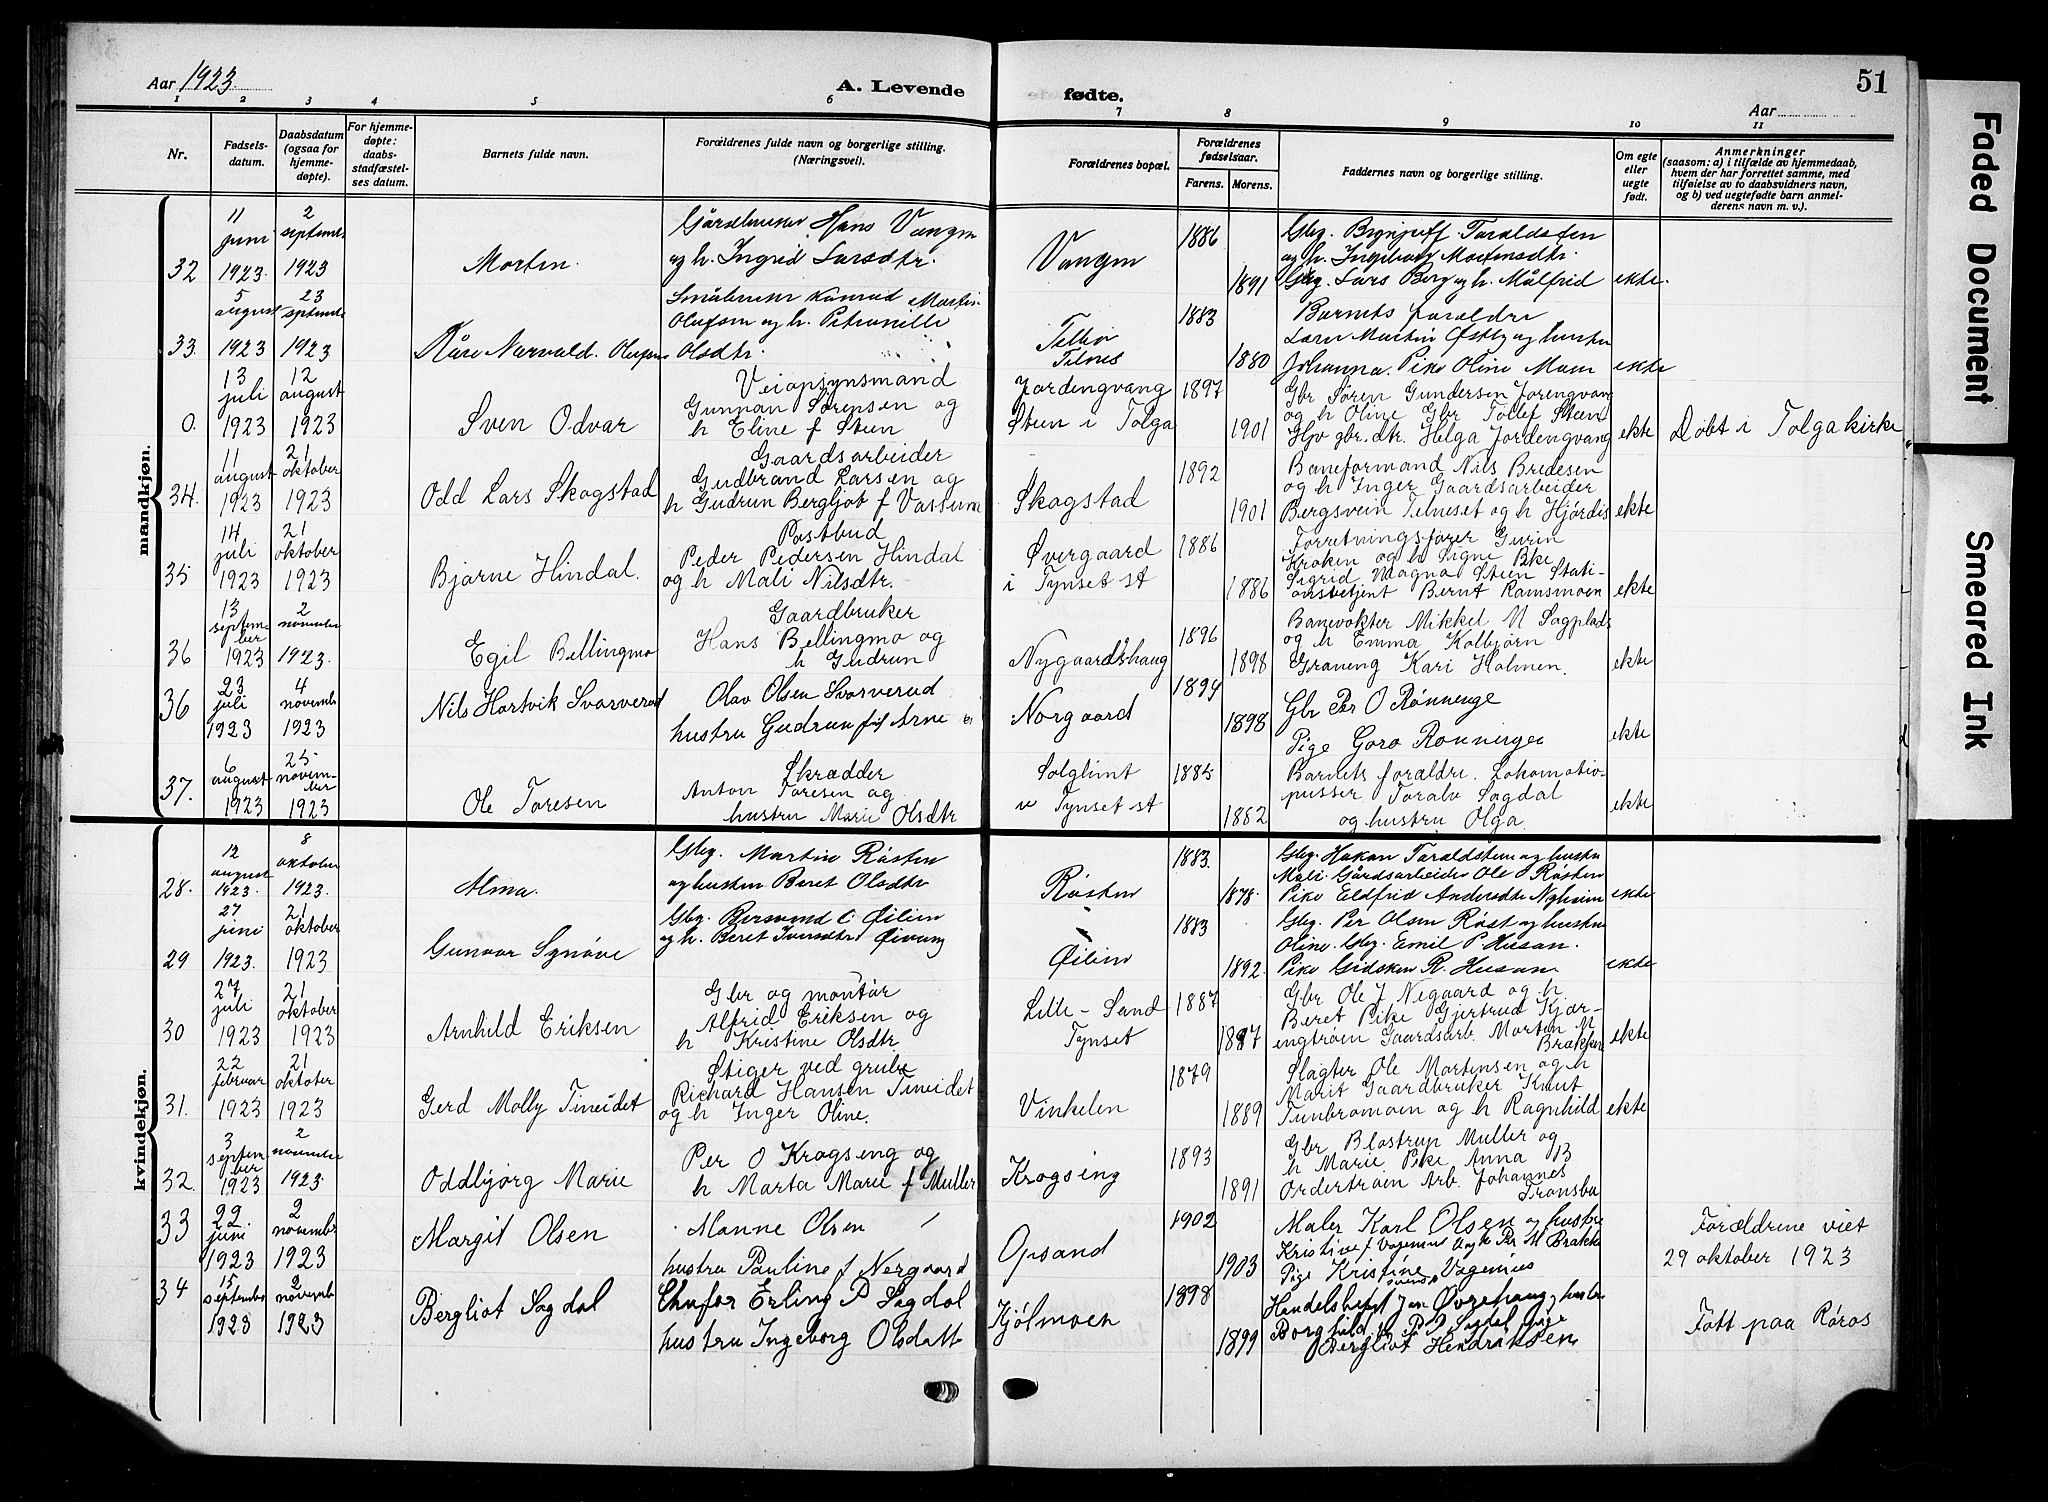 Aar 1923.
A. Levende fødte.
51
Aar
1 2 3 4 5 6 7 8 9 10 11
Nr.
Fødsels-
datum.
Daabsdatum
(ogsaa for
hjemme-
døpte).
For hjemme-
døpte:
daabs-
stadfæstel-
ses datum.
Barnets fulde navn.
Forældrenes fulde navn og borgerlige stilling.
(Næringsvei).
Forældrenes bopæl.
Forældrenes
fødselsaar.
Farens. Morens.
Faddernes navn og borgerlige stilling.
Om egte
eller
uegte
født.
Anmerkninger
(saasom: a) i tilfælde av hjemmedaab,
hvem der har forrettet samme, med
tilføielse av to daabsvidners navn,
og b) ved uegtefødte barn anmel-
derens navn m. v.).
mandkjøn.
32
11
juni
1923.
2
septembr
1923
Morten.
Gårdbruker Hans Vangen
og h. Ingrid Larsdtr.
Vangen
1886
1891
Gbg. Brynjulf Taraldsten
og h. Ingeborg Mortensdtr.
Gbg. Lars Berg og h. Målfrid
ekte.
33.
5
august
1923
23
septembr
1923
Kåre Norvald. Olufsen
Småbruker Konrad Martin
Olufsen og h. Petronille
Olsdtr.
Telnes
1883
1880
Barnets foraldre
Lars Martin Østby og hustru
Johanna. Pike Oline Moen
ekte
0.
13
juli
1923
12
august
1923
Sven Odvar
Veiopsynsmand
Gunnar Sørensen og
h Eline f Steen
Jordengvang
Steen i Tolga
1897
1901
Gbr Søren Gundersen Jorengvang
og h Oline Gbr Tollef Steen
Hjv gbr. dtr. Helga Jordengvang
ekte
Døbt i Tolga kirke
34.
11
august
1923
21
oktober
1923
Odd Lars Skogstad
Gaardsarbeider
Gudbrand Larsen og
h Gudrun Bergljot f Vassum
Skogstad
1892
1901
Baneformand Nils Bredesen
og h Inger Gaardsarbeider
Bergsvein Telneset og h Hjørdis
ekte
35
14
juli
1923
21
oktober
1923
Bjarne Hindal.
Postbud
Peder Pedersen Hindal
og h Mali Nilsdtr.
Øvergaard
i Tynset st
1886
1886
Forretningsfører Gurin
Kroken og h Signe Pke
Sigrid Magna Steen Stati-
onsbetjent Bernt Ramsmoen
ekte
36
13
septem-
ber
1923
2
november
1923.
Egil Bellingmo
Gaardbruker
Hans Bellingmo og
h Gudrun
Nygaardshaug
1896
1898
Banevokter Mikkel N Sagplads
og h Emma Kolbjørn
Graveng Kari Holmen.
ekte
36
23
juli
1923
4
novembr
1923
Nils Hartvik Svarverud
Olav Olsen Svarverud
hustru Gudrun f Arne
Norgaard
1894
1898
Gbr Per O Rønninge
Pige Goro Rønningen
ekte
37.
6
august
1923
25
novem-
ber
1923
Ole Toresen
Skrædder
Anton Toresen og
hustru Marie Olsdtr
Solglimt
v Tynset st
1885
1882
Barnets foraldre. Lokomotiv-
pusser Toralv Sagdal
og hustru Olga
ekte
kvindekjøn.
28.
12
august
1923.
8
oktober
1923.
Alma.
Gbg. Martin Røsten
og hustru Beret Olsdtr
Røsten
1883.
1878.
Gbg. Håkon Taraldsten og hustru
Mali Gårdsarbeider Ole O Røsten
Pike Eldfrid Andersdtr Nyheim
ekte
29
27
juni
1923.
21
oktober
1923
Gunvor Synøve
Gbg. Bersvend O Øilien
og h. Beret Iversdtr Øivang
Øilien
1883
1892.
Gbg. Per Olsen Røst og hustru
Oline. Gbg. Emil P Husan.
Pike Gidsken R. Husan
ekte
30
27
juli
1923
21
oktober
1923
Arnhild Eriksen
Gbr og montør
Alfrid Eriksen og
h Kristine Olsdtr
Lille-Sand
Tynset
1887
1887
Gbr Ole J Negaard og h
Beret Pike Gjertrud Kjær-
engtrøen Gaardsarb. Morten M
Brækken
ekte
31.
22
februar
1923
21
oktober
1923
Gerd Molly Tineidet
Stiger ved grube
Richard Hansen Tineidet
og h Inger Oline.
Vinkelen
1879
1889
Slagter Ole Mortensen og h
Marit Gaardbruker Knut
Tunbromoen og h Ragnhild
ekte
32.
3
septem-
ber
1923
2
november
1923
Oddbjørg Marie
Per O Krogseng og
h Marta Marie f Muller
Krogseng
1893
1891
Gbr Blostrup Muller og
h Marie Pike Anna B
Ordertrøen Arb. Johannes
Tronsbu
33
22
juni
1923
2
novembr
1923
Margit Olsen
Manne Olsen
hustru Pauline f Nergaard
Opsand
1902
1903
Maler Karl Olsen og hustru
Pige Kristine Vagenius
Forældrene viet
29 oktober 1923
34
15
september
1923
2
novembr
1923
Bergliot Sagdal
Chufør Erling P Sagdal
hustru Ingeborg Olsdatt
Kjølmoen
1898
1899
Handelsbetj Jon Øvrehaug og hustru
Borghild P. Sagdal pige
Bergliot Hendriksen
Føtt paa Røros
Faded Document
Smeared Ink